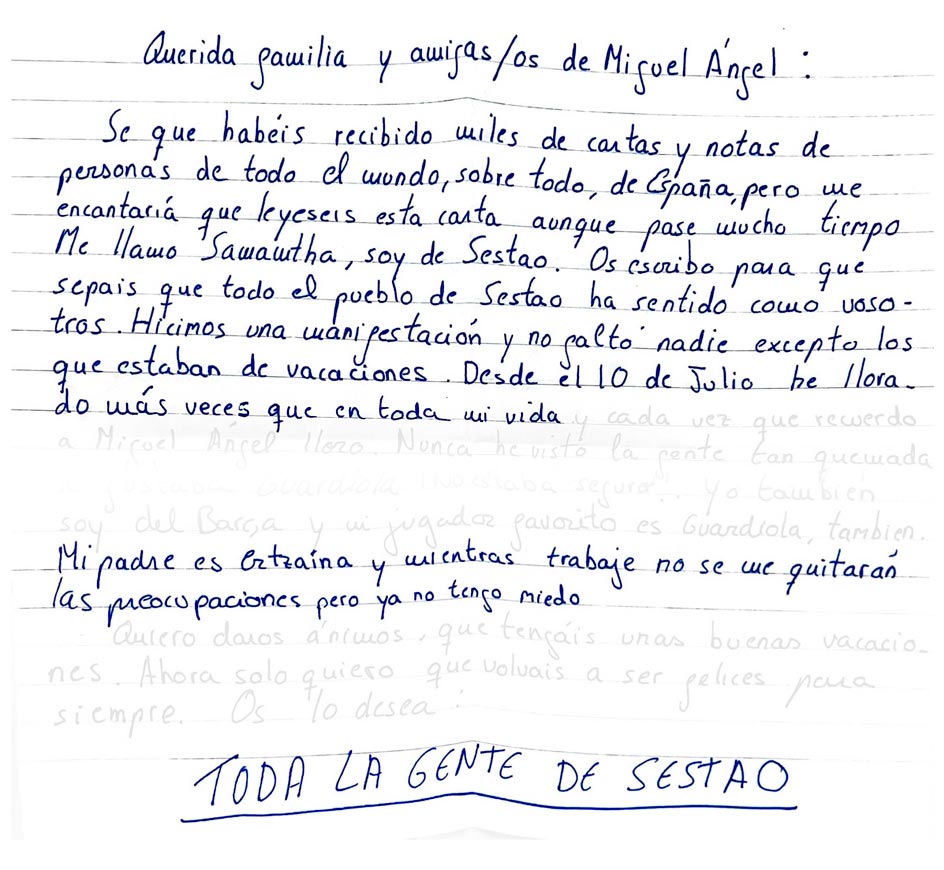 Querida familia y amigas/os de Miguel Ángel :
Se que habéis recibido miles de cartas y notas de
personas de todo el mundo, sobre todo, de España, pero me
encantaría que leyeseis esta carta aunque pase mucho tiempo
Me llamo Samantha, soy de Sestao. Os escribo para que
sepais que todo el pueblo de Sestao ha sentido como voso-
tros. Hicimos una manifestación y no faltó nadie excepto los
que estaban de vacaciones. Desde el 10 de Julio he llora-
do más veces que en toda mi vida y cada vez que recuerdo
a Miguel Ángel lloro. Nunca he visto la gente tan quemada
Guardiola seguro". Yo tambien
soy del Barça y mi jugador favorito es Guardiola, tambien.
Mi padre es Ertzaina y mientras trabaje no se me quitarán
las preocupaciones pero ya no tengo miedo
Quiero daros ánimos, que tengáis unas buenas vacacio-
nes. Ahora solo quiero que volvais a ser felices para
siempre. Os lo desea :
TODA LA GENTE DE SESTAO